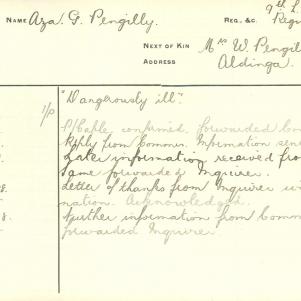 NAME Aza. G. Pengilly. REG. &C. 9th L.
NEXT OF KIN Mrs W. Pengil
ADDRESS Aldinga.
"Dangerously ill".
P/Cable confirmed. Forwarded
Reply from Commn. Information sen
Later information received fro
Same forwarded Inquirer.
8. Letter of thanks from Inquirer
8. nation. Acknowledged.
Further information from Comm
forwarded Inquirer.